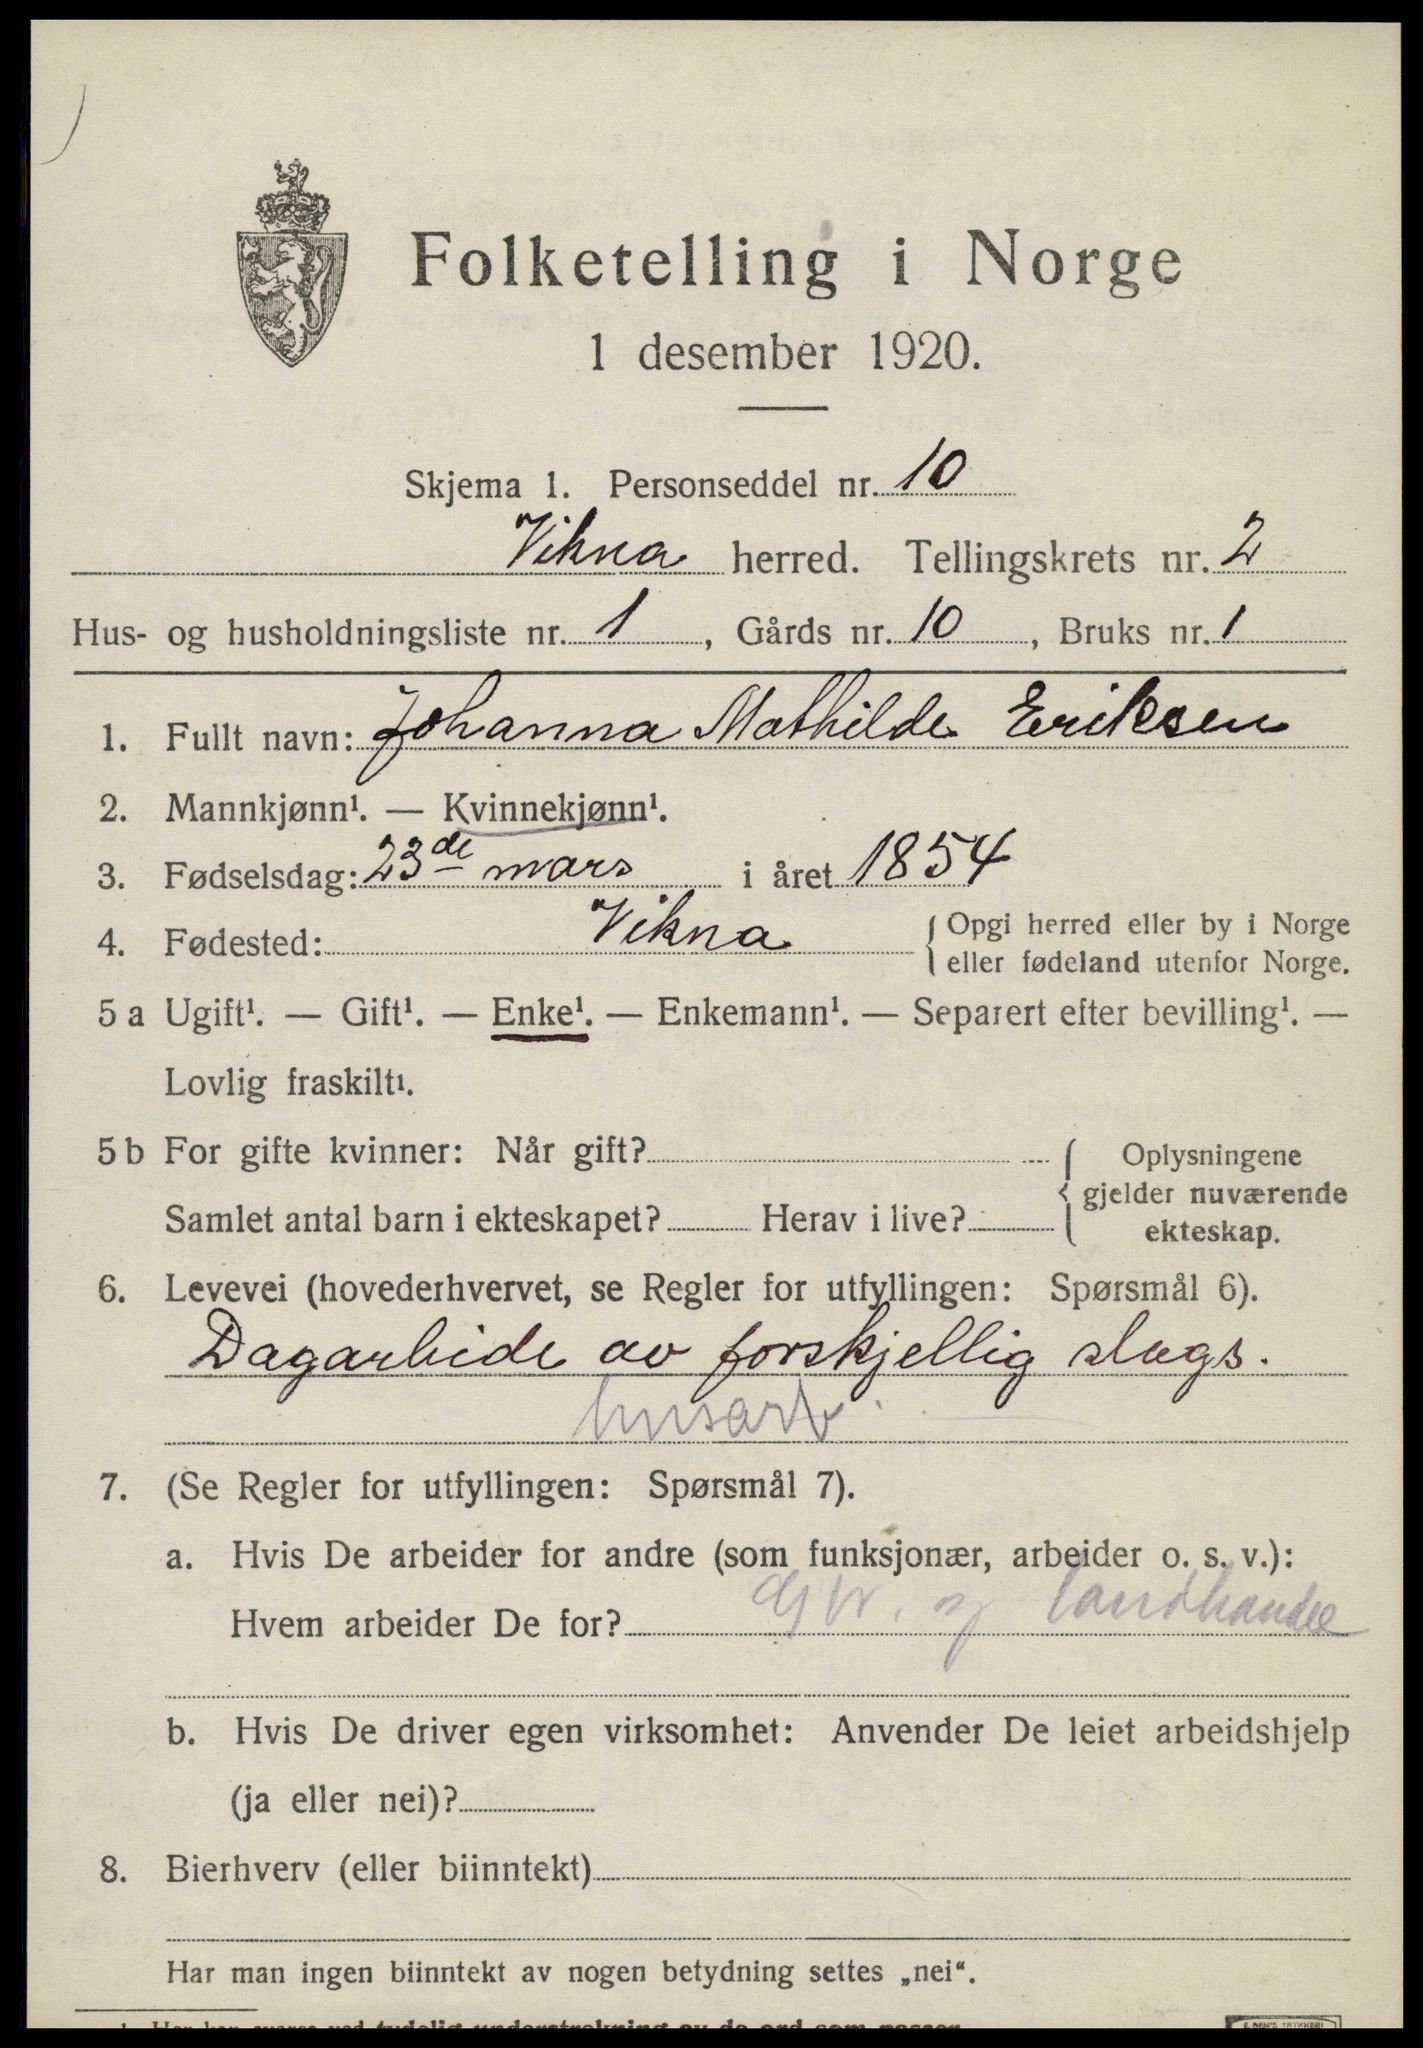 Folketelling i Norge
1 desember 1920.
Skjema 1. Personseddel nr. 10
Vikna herred. Tellingskrets nr. 2
Hus- og husholdningsliste nr. 1, Gårds nr. 10, Bruks nr. 1
1. Fullt navn: Johanna Mathilde Eriksen
2. Mannkjønn¹. — Kvinnekjønn¹.
3. Fødselsdag: 23de mars i året 1854
4. Fødested: Vikna { Opgi herred eller by i Norge
eller fødeland utenfor Norge.
5 a Ugift¹. — Gift¹. — Enke¹. — Enkemann¹. — Separert efter bevilling¹. —
Lovlig fraskilt¹.
5 b For gifte kvinner: Når gift?
Samlet antal barn i ekteskapet? Herav i live?
Oplysningene
gjelder nuværende
ekteskap.
6. Levevei (hovederhvervet, se Regler for utfyllingen: Spørsmål 6).
Dagarbeide av forskjellig slags.
husarb.
7. (Se Regler for utfyllingen: Spørsmål 7).
a. Hvis De arbeider for andre (som funksjonær, arbeider o. s. v.):
Hvem arbeider De for? landhandel
b. Hvis De driver egen virksomhet: Anvender De leiet arbeidshjelp
(ja eller nei)?
8. Bierhverv (eller biinntekt)
Har man ingen biinntekt av nogen betydning settes „nei“.